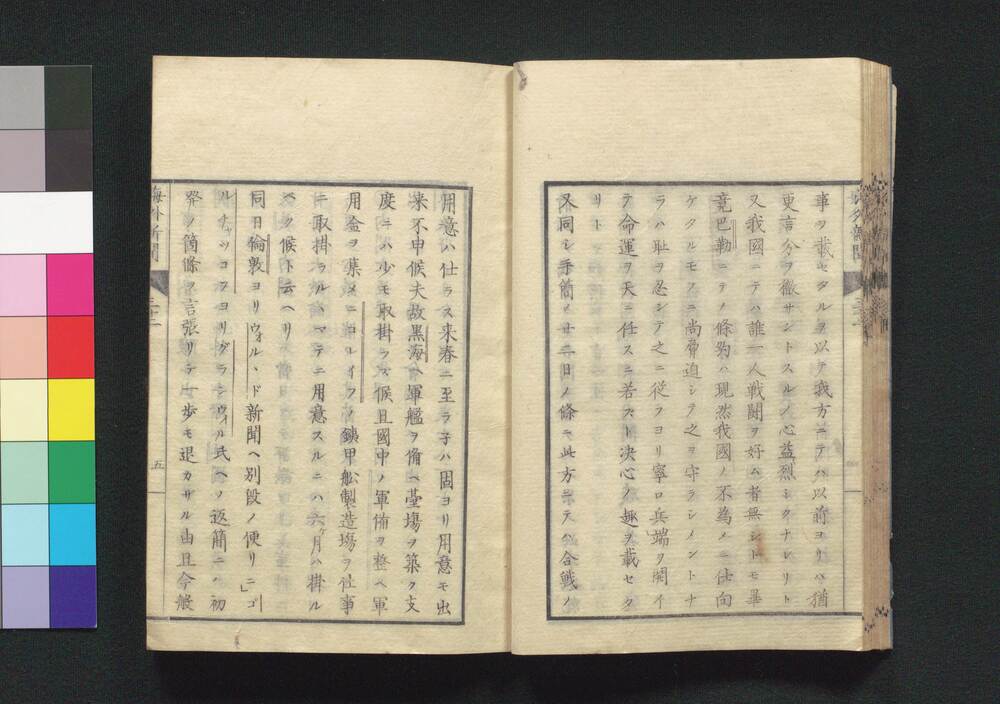 事ヲ載セタルヲ以テ我方ニテハ以前ヨリハ猶
更言分ヲ徹サントスルノ心益烈シクナレリト
又我國ニテハ誰一人戦闘ヲ好ム者無シトモ畢
竟巴勒ニテノ條約ハ現然我國ノ不為メニ仕向
ケタルモノニ尚脅迫シテ之ヲ守ラシメントナ
ラハ恥ヲ忍シテ之ニ従フヨリ寧ロ兵端ヲ開イ
テ命運ヲ天ニ任スニ若スト決心ノ趣ヲ載セタ
リト
又同シ手簡ノ廿二日ノ條ニ此方ニテハ合戦ノ
用意ハ仕ラス来春ニ至ラ子ハ固ヨリ用意モ出
来不申候夫故黒海ヘ軍艦ヲ備ヘ臺場ヲ築ク支
度ニハ少モ取掛ラス候且國中ノ軍備ヲ整ヘ軍
用金ヲ募メニコレイフノ鉄甲舩製造場ヲ仕事
ニ取掛ラルヽマテニ用意スルニハ六ヶ月ハ掛ル
ヘク候ト云ヘリ
同日倫敦ヨリウォルヽド新聞ヘ別段ノ便リニゴ
ルチャッコフヨリグランウィル氏ヘノ返簡ニハ初
發ノ箇條ヲ言張リテ一歩モ退カサル由且今般
海外新聞
五